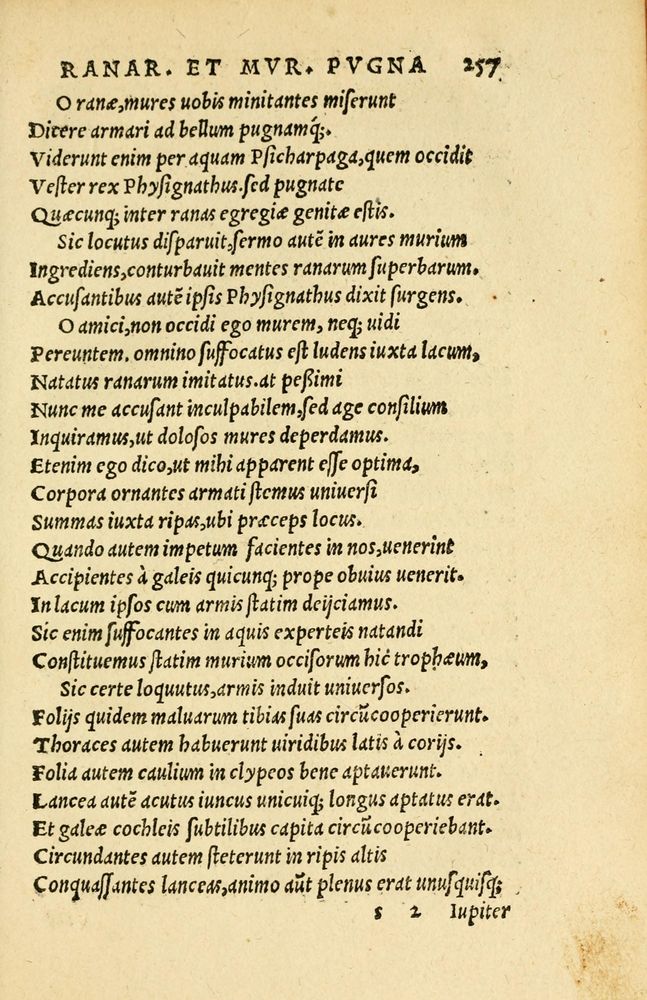 RANAR. ET MVR. PVGNA 257
O ranæ, mures uobis minitantes miſerunt
Dicere armari ad bellum pugnamq́;.
Viderunt enim per aquam Pſicharpaga, quem occidit
Veſter rex Phyſignathus. ſed pugnate
Quæcunq; inter ranas egregiæ genitæ eſtis.
Sic locutus diſparuit, ſermo autē in aures murium
Ingrediens, conturbauit mentes ranarum ſuperbarum.
Accuſantibus autē ipſis Phyſignathus dixit ſurgens.
O amici, non occidi ego murem, neq; uidi
Pereuntem. omnino ſuffocatus eſt ludens iuxta lacum,
Natatus ranarum imitatus. at peßimi
Nunc me accuſant inculpabilem, ſed age conſilium
Inquiramus, ut doloſos mures deperdamus.
Etenim ego dico, ut mihi apparent eſſe optima,
Corpora ornantes armati ſtemus uniuerſi
Summas iuxta ripas, ubi præceps locus.
Quando autem impetum facientes in nos, uenerint
Accipientes à galeis quicunq; prope obuius uenerit.
In lacum ipſos cum armis ſtatim deijciamus.
Sic enim ſuffocantes in aquis experteis natandi
Conſtituemus ſtatim murium occiſorum hic trophæum,
Sic certe loquutus, armis induit uniuerſos.
Folijs quidem maluarum tibias ſuas circūcooperierunt.
Thoraces autem habuerunt uiridibus latis à corijs.
Folia autem caulium in clypeos bene aptauerunt.
Lancea autē acutus iuncus unicuiq; longus aptatus erat.
Et galeæ cochleis ſubtilibus capita circūcooperiebant.
Circundantes autem ſteterunt in ripis altis
Conquaſſantes lanceas, animo aūt plenus erat unuſquiſq;
s 2 Iupiter